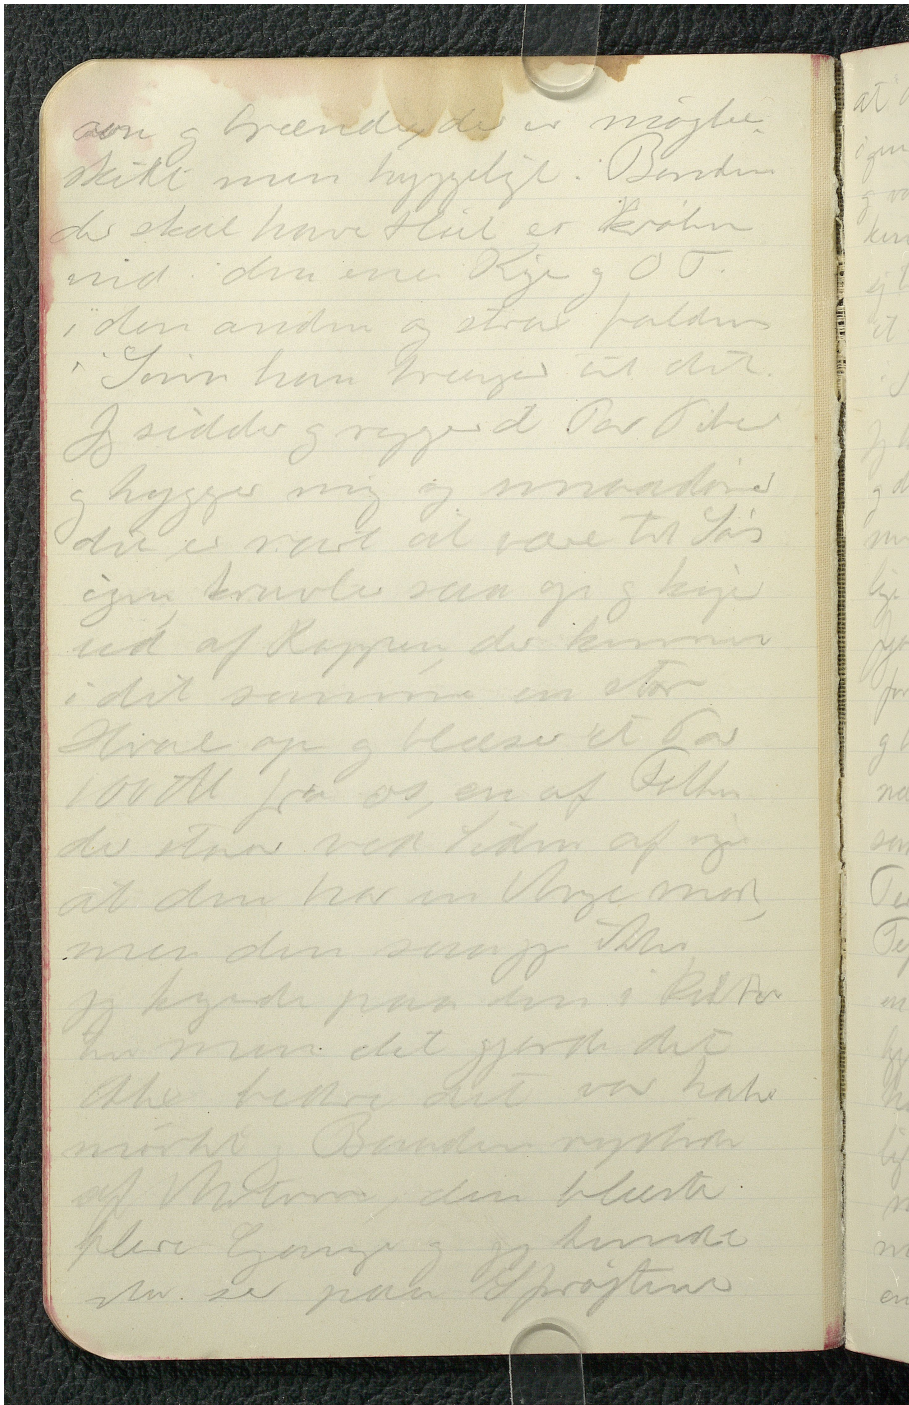 og brænder, der er møgbe-
skidt men hyggeligt. Banden
der skal have Hvil er krøben
ind i den ene Køje og O T.
i den anden og strax falden
i Søvn han trænger til det.
Jeg sidder og ryger et Par Piber
og hygger mig og smaadöser
det er rart at være til Søs
igen, kravler saa op og kiger
ud af Kappen, der kommer
i det samme en stor
Hval op og blæser et Par
100 M fra os, en af Folkene
der staar ved Siden af siger
at den har en Unge med,
men den saa jeg ikke
jeg kigede paa den i Kik
men det gjorde det
ikke bedre det var halv
mörkt og Baaden rystede
af Motoren, den blæste
flere Gange og jeg kunde
se paa Sprøjtene